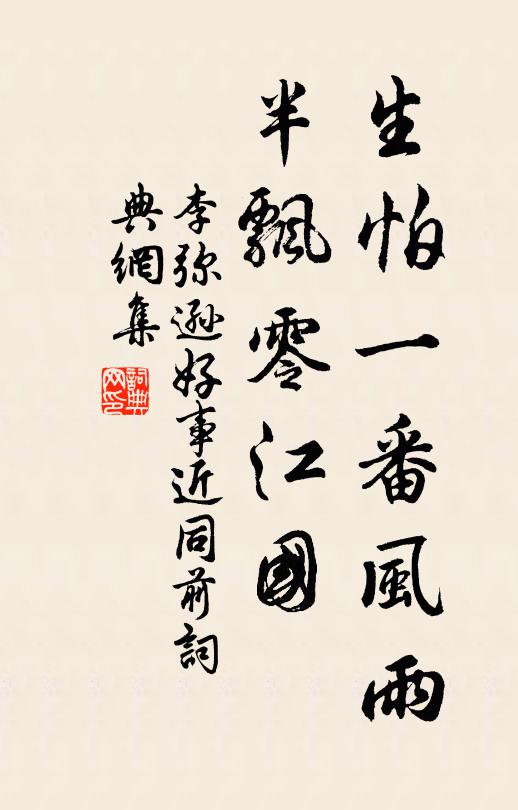 生怕一番風雨
半飄零江國
李弥遜好事近同前詞
典網集
詞典網印